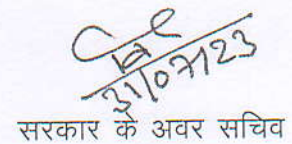 31/07/23
सरकार के अवर सचिव